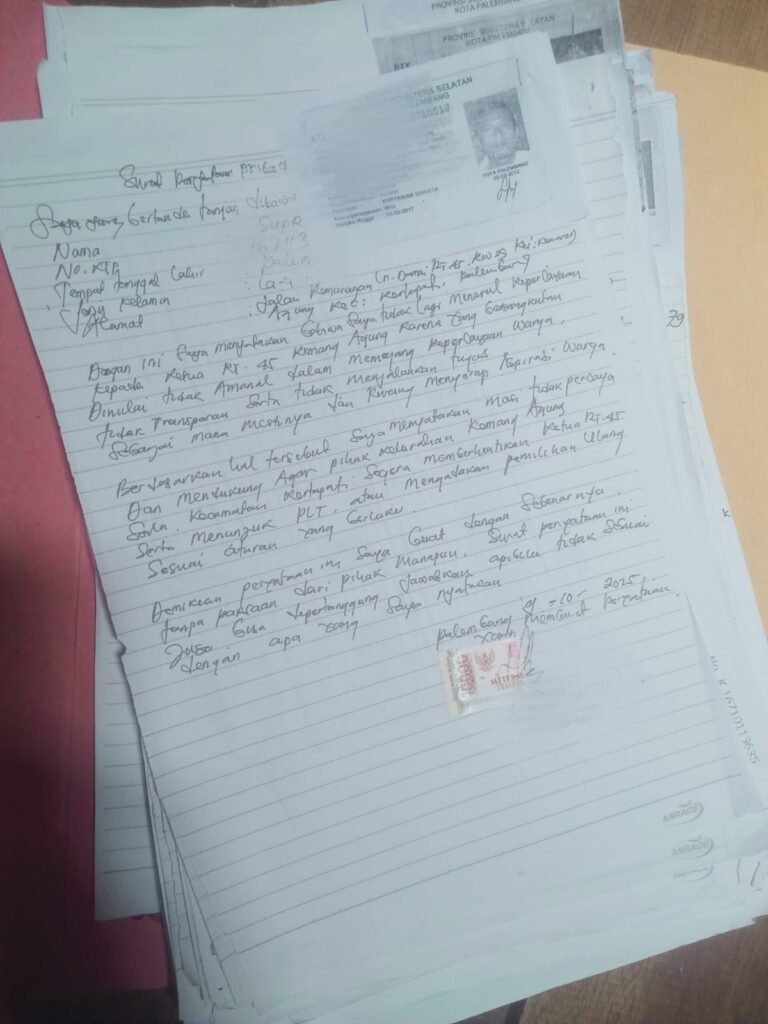 PROVINSI SUMATERA SELATAN
KOTA PALEMBANG
PROVINSI SUMATERA SELATAN
KOTA PALEMBANG
NIK
SUMATERA SELATAN
PALEMBANG
KARYAWAN SWASTA
Kewarganegaraan: WNI
Berlaku Hingga
KOTA PALEMBANG
Surat Pernyataan Pribadi
Saya yang bertanda tangan dibawah
Nama : Supr
No. KTP : 1671 13
Tempat tanggal Lahir : Palem
Jenis Kelamin : Laki
Alamat : Jalan Kemarangan Ln. Damai RT. 45. RW. 09 Kel: Kemang
Agung Kec: Kertapati. Palembang
Dengan ini Saya menyatakan bahwa Saya tidak lagi menaruh Kepercayaan
Kepada Ketua RT. 45 Kemang Agung Karena Yang bersangkutan
Dinilai tidak Amanah dalam Memegang Kepercayaan Warga,
tidak Transparan Serta tidak menjalankan tugas
Sebagai mana Mestinya dan Kurang Menyerap Aspirasi Warga
Berdasarkan hal tersebut Saya Menyatakan Mosi tidak percaya
Dan Mendukung Agar pihak Kelurahan Kemang Agung
Serta Kecamatan Kertapati. Segera Memberhentikan Ketua RT. 45
Serta Menunjuk PLT, atau Mengadakan pemilihan Ulang
Sesuai aturan yang berlaku.
Demikean peryataan ini Saya buat dengan Sebenarnya.
tanpa paksaan dari pihak Manapun. Surat penyataan ini
Juga bisa dipertanggung Jawabkan apabila tidak Sesuai
dengan apa yang Saya nyatakan
Palembang 09 - 10 - 2025
Yang Membuat Peryataan.
10000
METERAI
TEMPEL
79
K
No. K 16710113635
MIRAGE
MIRAGE